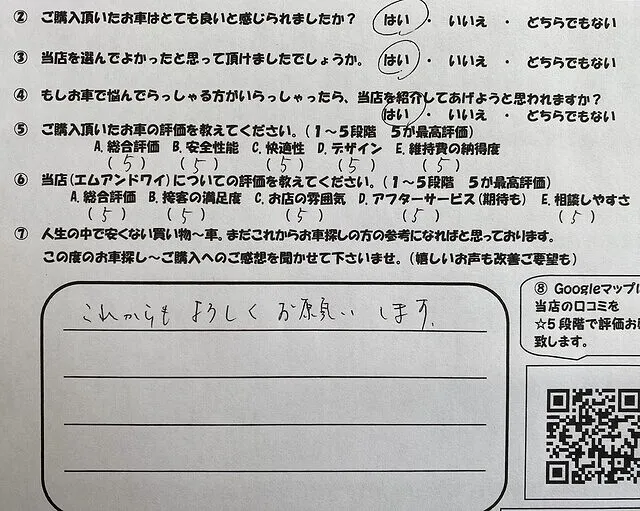 ② ご購入頂いたお車はとても良いと感じられましたか? はい ・ いいえ ・ どちらでもない
③ 当店を選んでよかったと思って頂けましたでしょうか。 はい ・ いいえ ・ どちらでもない
④ もしお車で悩んでらっしゃる方がいらっしゃったら、当店を紹介してあげようと思われますか?
はい ・ いいえ ・ どちらでもない
⑤ ご購入頂いたお車の評価を教えてください。(1~5段階 5が最高評価)
A.総合評価 B.安全性能 C.快適性 D.デザイン E.維持費の納得度
(5) (5) (5) (5) (5)
⑥ 当店(エムアンドワイ)についての評価を教えてください。(1~5段階 5が最高評価)
A.総合評価 B.接客の満足度 C.お店の雰囲気 D.アフターサービス(期待も) E.相談しやすさ
(5) (5) (5) (5) (5)
⑦ 人生の中で安くない買い物~車。まだこれからお車探しの方の参考になればと思っております。
この度のお車探し~ご購入へのご感想を聞かせて下さいませ。(嬉しいお声も改善ご要望も)
これからも よろしく お願い します.
⑧ Googleマップに
当店の口コミを
☆5段階で評価お
致します。